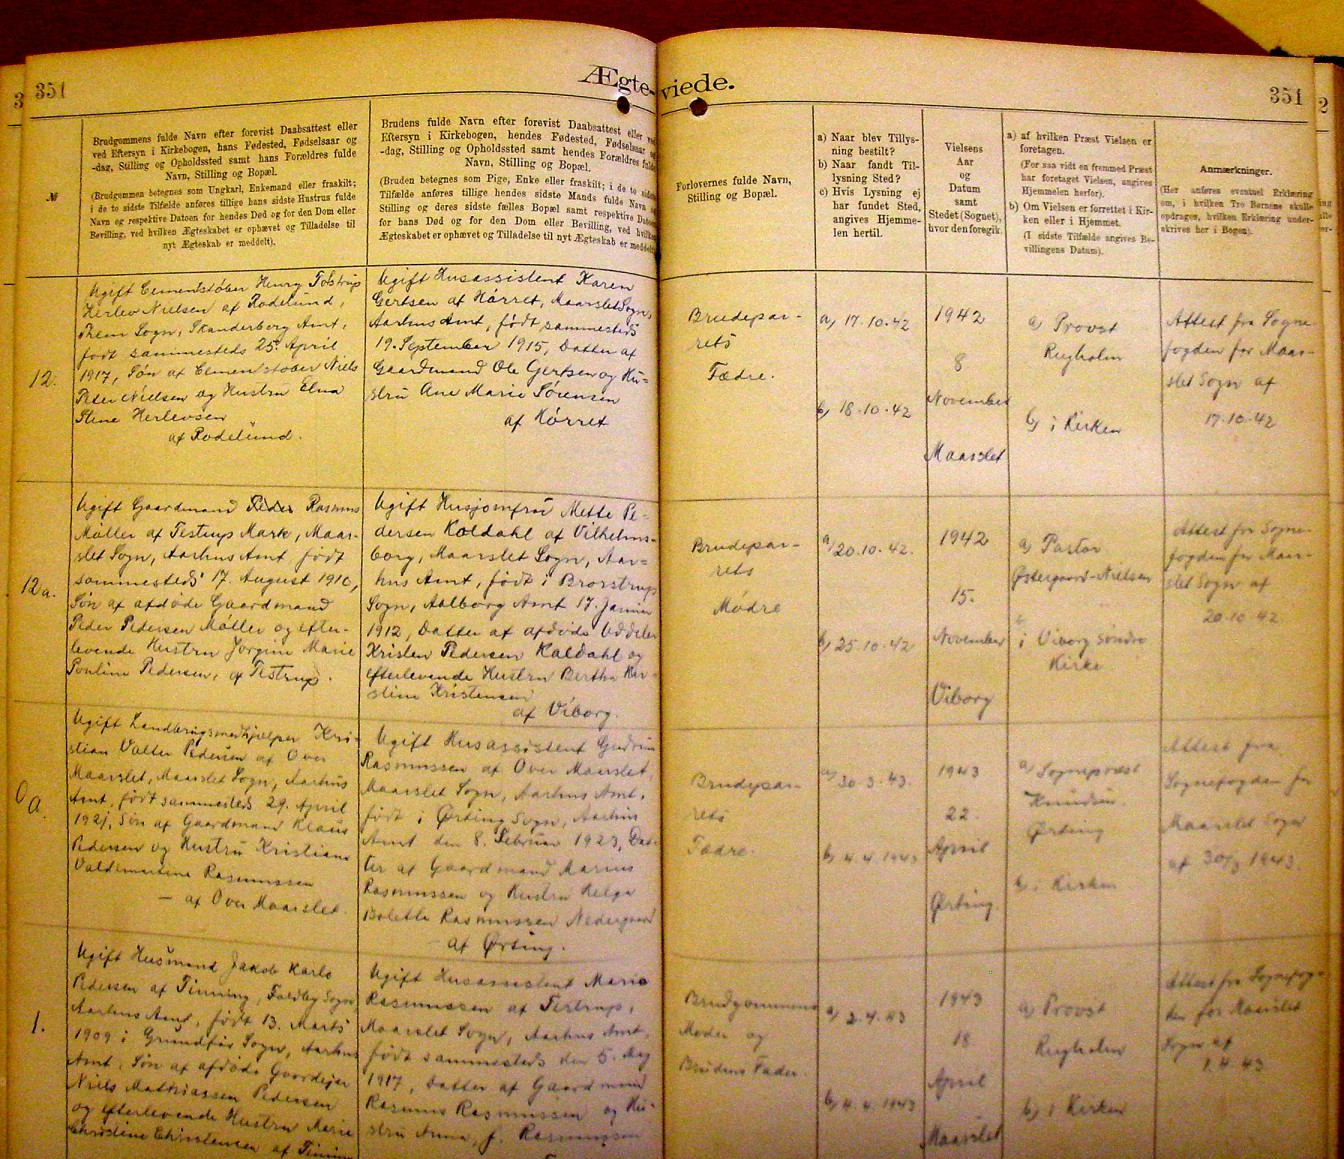 351
Ægte-viede.
351
№
Brudgommens fulde Navn efter forevist Daabsattest eller
ved Eftersyn i Kirkebogen, hans Fødested, Fødselsaar og
-dag, Stilling og Opholdssted samt hans Forældres fulde
Navn, Stilling og Bopæl.
(Brudgommen betegnes som Ungkarl, Enkemand eller fraskilt;
i de to sidste Tilfælde anføres tillige hans sidste Hustrus fulde
Navn og respektive Datoen for hendes Død og for den Dom eller
Bevilling, ved hvilken Ægteskabet er ophævet og Tilladelse til
nyt Ægteskab er meddelt).
Brudens fulde Navn efter forevist Daabsattest eller ved
Eftersyn i Kirkebogen, hendes Fødested, Fødselsaar og
-dag, Stilling og Opholdssted samt hendes Forældres fulde
Navn, Stilling og Bopæl.
(Bruden betegnes som Pige, Enke eller fraskilt; i de to sidste
Tilfælde anføres tillige hendes sidste Mands fulde Navn,
Stilling og deres sidste fælles Bopæl samt respektive Datoen
for hans Død og for den Dom eller Bevilling, ved hvilken
Ægteskabet er ophævet og Tilladelse til nyt Ægteskab er meddelt)
Forlovernes fulde Navn,
Stilling og Bopæl.
a) Naar blev Tillys-
ning bestilt?
b) Naar fandt Til-
lysning Sted?
c) Hvis Lysning ej
har fundet Sted,
angives Hjemme-
len hertil.
Vielsens
Aar
og
Datum
samt
Stedet (Sognet),
hvor den foregik.
a) af hvilken Præst Vielsen er
foretagen.
(For saa vidt en fremmed Præst
har foretaget Vielsen, angives
Hjemmelen herfor).
b) Om Vielsen er forrettet i Kir-
ken eller i Hjemmet.
(I sidste Tilfælde angives Be-
villingens Datum).
Anmærkninger.
(Her anføres eventuel Erklæring
om, i hvilken Tro Børnene skulle
opdrages, hvilken Erklæring under-
skrives her i Bogen).
12.
Ugift Cementstøber Henry Tolstrup
Herlev Nielsen af Rodelund,
Them Sogn, Skanderborg Amt,
født sammesteds 25. April
1917, Søn af Cementstøber Niels
Peter Nielsen og Hustru Elna
Stine Herlevsen
af Rodelund.
Ugift Husassistent Karen
Gertsen af Hørret, Maarslet Sogn,
Aarhus Amt, født sammesteds
19. September 1915, Datter af
Gaardmand Ole Gertsen og Hu-
stru Ane Marie Sørensen
af Hørret
Brudepar-
rets
Fædre.
a) 17-10-42
b) 18-10-42
1942
8
November
Maarslet
a) Provst
Rugholm
b) i Kirken
Attest fra Sogne-
fogden for Maar-
slet Sogn af
17-10-42
12a.
Ugift Gaardmand Peder Rasmus
Møller af Testrup Mark, Maar-
slet Sogn, Aarhus Amt født
sammesteds 17. August 1910,
Søn af afdøde Gaardmand
Peder Pedersen Møller og efter-
levende Hustru Jørgine Marie
Pouline Pedersen, af Testrup.
Ugift Husjomfru Mette Pe-
dersen Koldahl af Vilhelms-
borg, Maarslet Sogn, Aar-
hus Amt, født i Brorstrup
Sogn, Aalborg Amt 17. Januar
1912, Datter af afdøde Uddeler
Kristen Pedersen Kaldahl og
efterlevende Hustru Bertha Kir-
stine Kristensen
af Viborg.
Brudepar-
rets
Mødre
a) 20-10-42.
b) 25-10-42
1942
15.
November
Viborg
a) Pastor
Østergaard-Nielsen
i Viborg søndre
Kirke
Attest fra Sogne-
fogden for Maar-
slet Sogn af
20-10-42
0a.
Ugift Landbrugsmedhjælper Kri-
stian Valter Pedersen af Over
Maarslet, Maarslet Sogn, Aarhus
Amt, født sammesteds 29. April
1921, Søn af Gaardmand Klaus
Pedersen og Hustru Kristiane
Valdemartine Rasmussen
— af Over Maarslet.
Ugift Husassistent Gudrun
Rasmussen af Over Maarslet,
Maarslet Sogn, Aarhus Amt,
født i Ørting Sogn, Aarhus
Amt den 8. Februar 1923, Dat-
ter af Gaardmand Marius
Rasmussen og Hustru Helga
Bolette Rasmussen Nedergaard
— af Ørting.
Brudepar-
rets
Fædre.
a) 30-3-43.
b) 4.4.1943
1943
22.
April
Ørting.
a) Sognepræst
Knudsen.
Ørting
b) i Kirken
Attest fra
Sognefogden for
Maarslet Sogn
af 30/3 1943.
1.
Ugift Husmand Jakob Karlo
Pedersen af Tinning, Foldby Sogn
Aarhus Amt, født 13. Marts
1909 i Grundfør Sogn, Aarhus
Amt, Søn af afdøde Gaardejer
Niels Mathiassen Pedersen
og efterlevende Hustru Marie
Christine Christensen af Tinning
Ugift Husassistent Marie
Rasmussen af Testrup,
Maarslet Sogn, Aarhus Amt,
født sammesteds den 5. Maj
1917, Datter af Gaardmand
Rasmus Rasmussen og Hu-
stru Anna, f. Rasmussen
Brudgommens
Moder og
Brudens Fader.
a) 2.4.43
b) 4.4.1943
1943
18
April
Maarslet
a) Provst
Rugholm
b) i Kirken
Attest fra Sognefog-
den for Maarslet
Sogn af
1.4.43